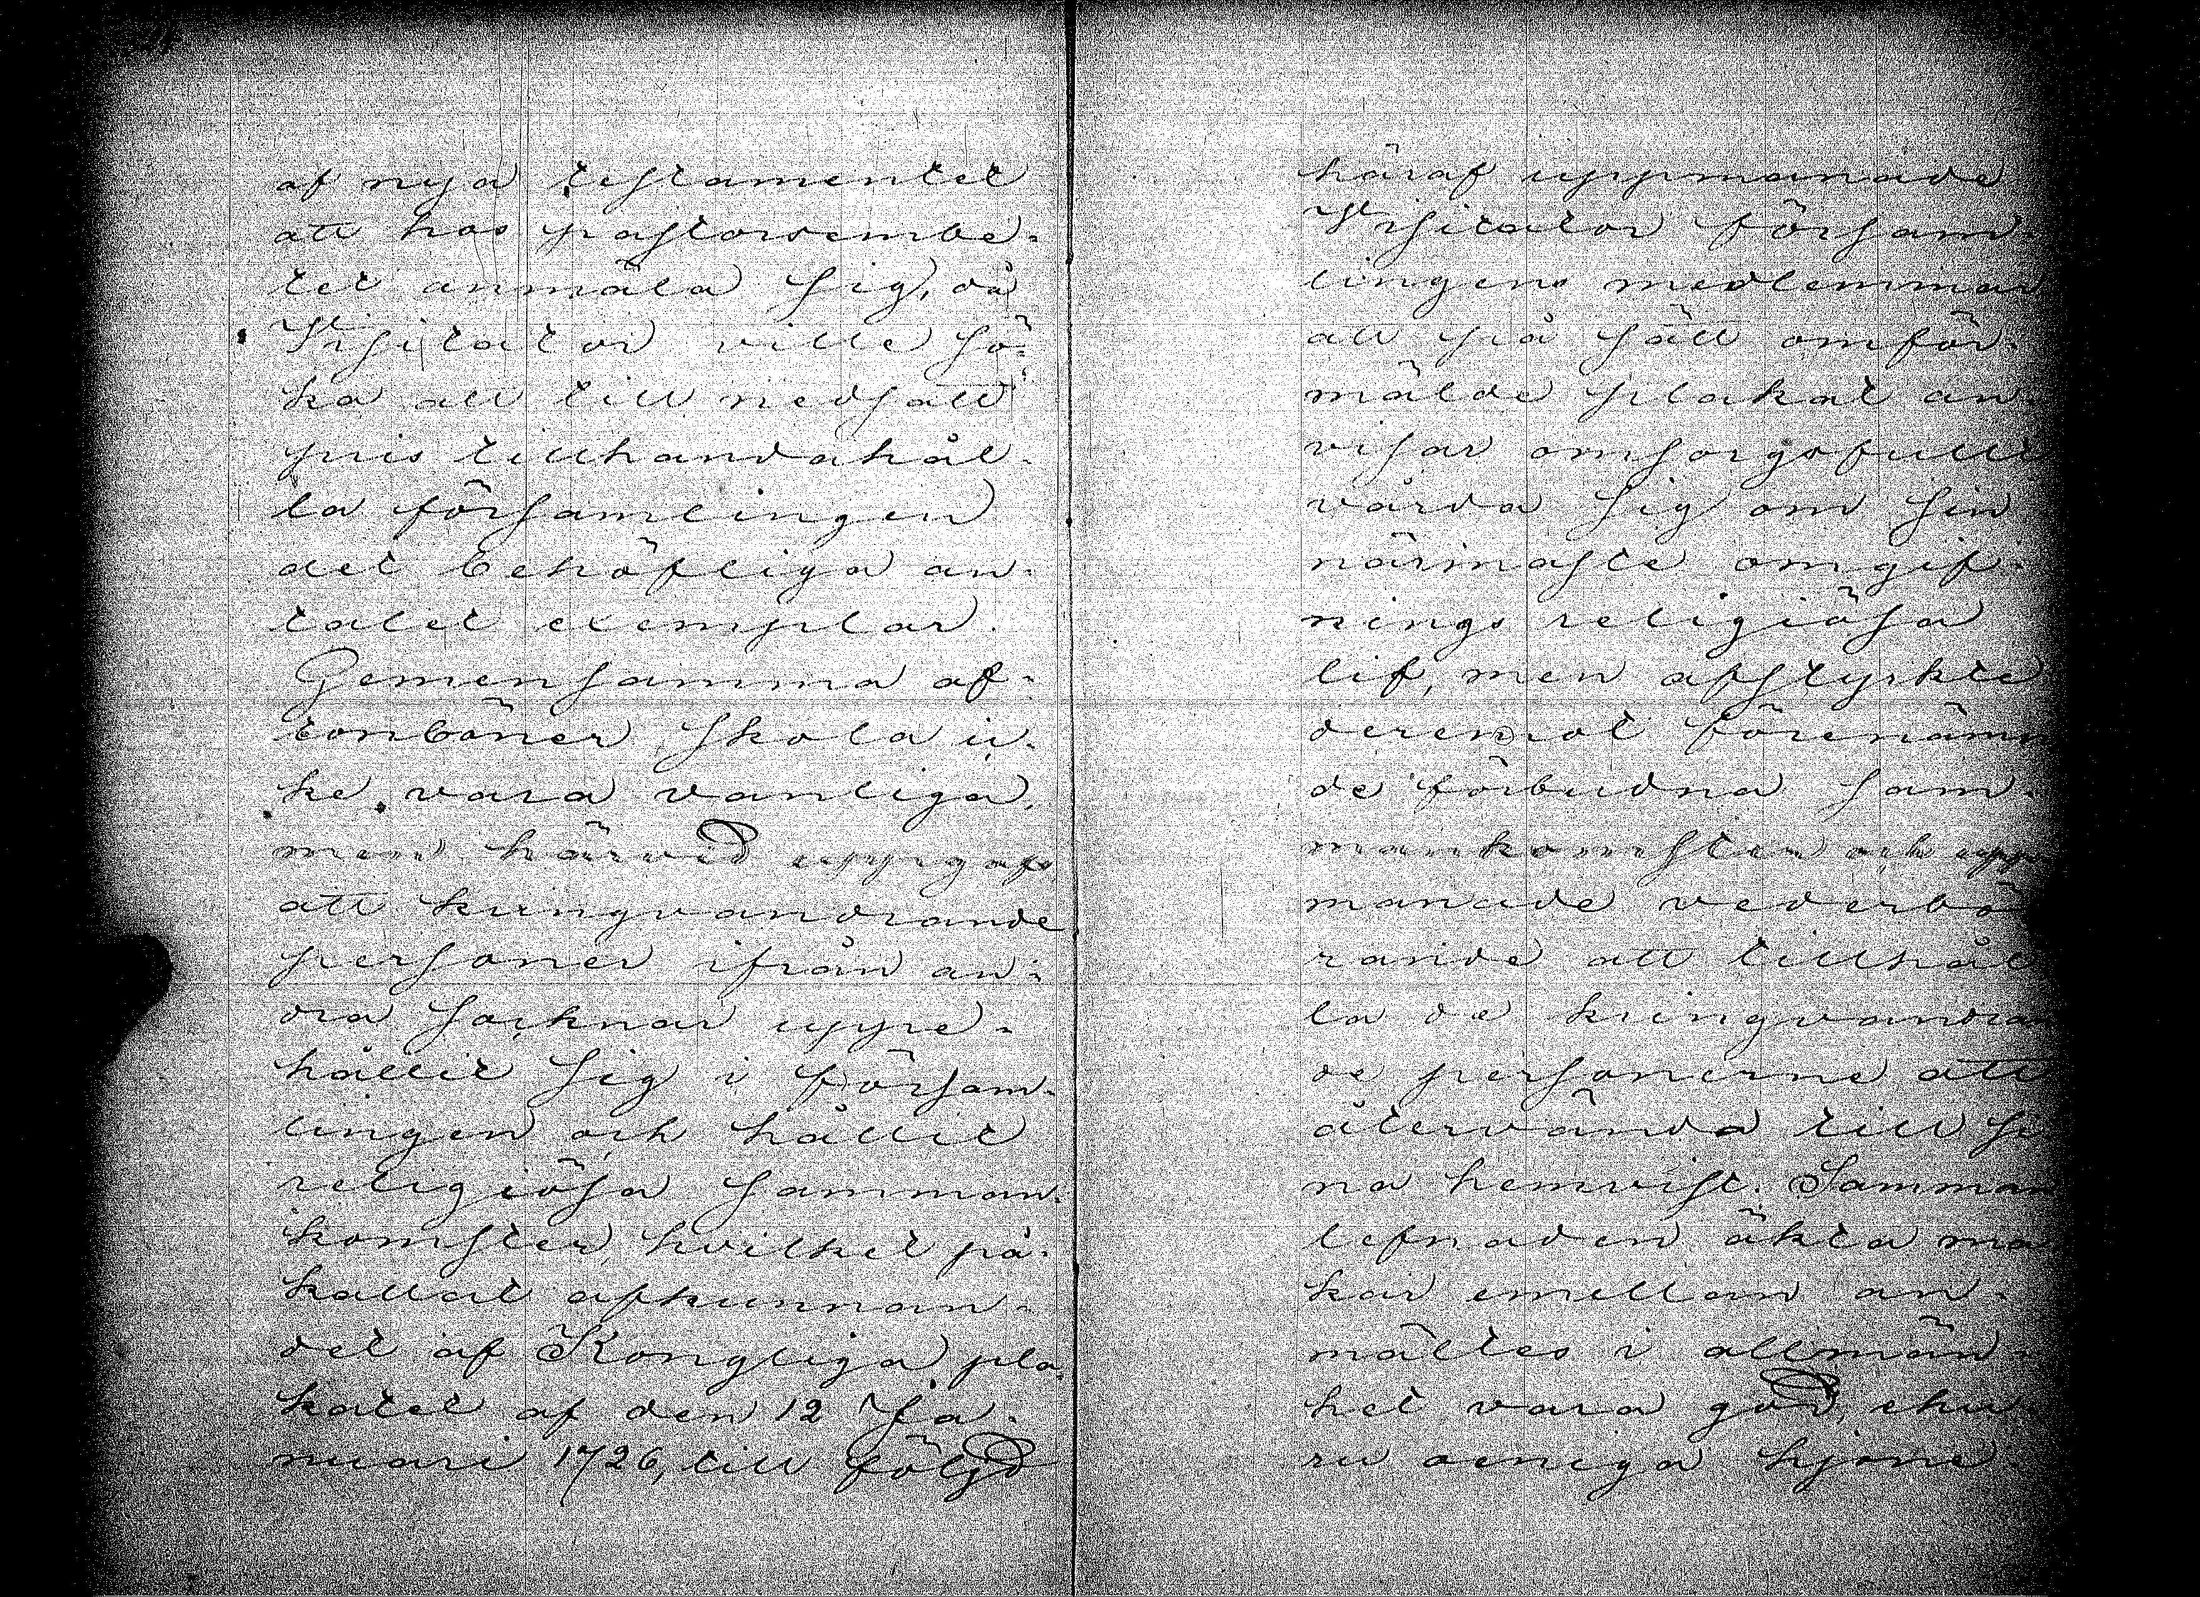 af nya testamentet
att hos pastorsembe-
tet anmäla sig, då
Visitator ville sö-
ka att till nedsatt
pris tillhandahål-
la församlingen
det behöfliga an-
talet exemplar.
Gemensamma af-
tonböner skola ic-
ke vara vanliga,
men härvid uppgafs,
att kringvandrande
personer ifrån an-
dra socknar uppe-
hållit sig i försam-
lingen och hållit
religiösa samman-
komster, hvilket på-
kallat afkunnan-
det af Kongliga pla-
katet af den 12 Ja-
nuari 1726, till följd
häraf uppmanade
Visitator försam-
lingens medlemmar
att på sätt omför-
mälde plakat an-
visar omsorgsfullt
vårda sig om sin
närmaste omgif-
nings religiösa
lif, men afstyrkte
deremot förenämn
de förbudna sam-
mankomster och upp
manade vederbö
rande att tillhål
la de kringvandran
de personerne att
återvända till si
na hemvist. Samman
lefnaden äkta ma
kar emellan an-
mältes i allmän-
het vara god, ehu-
ru oeniga hjone